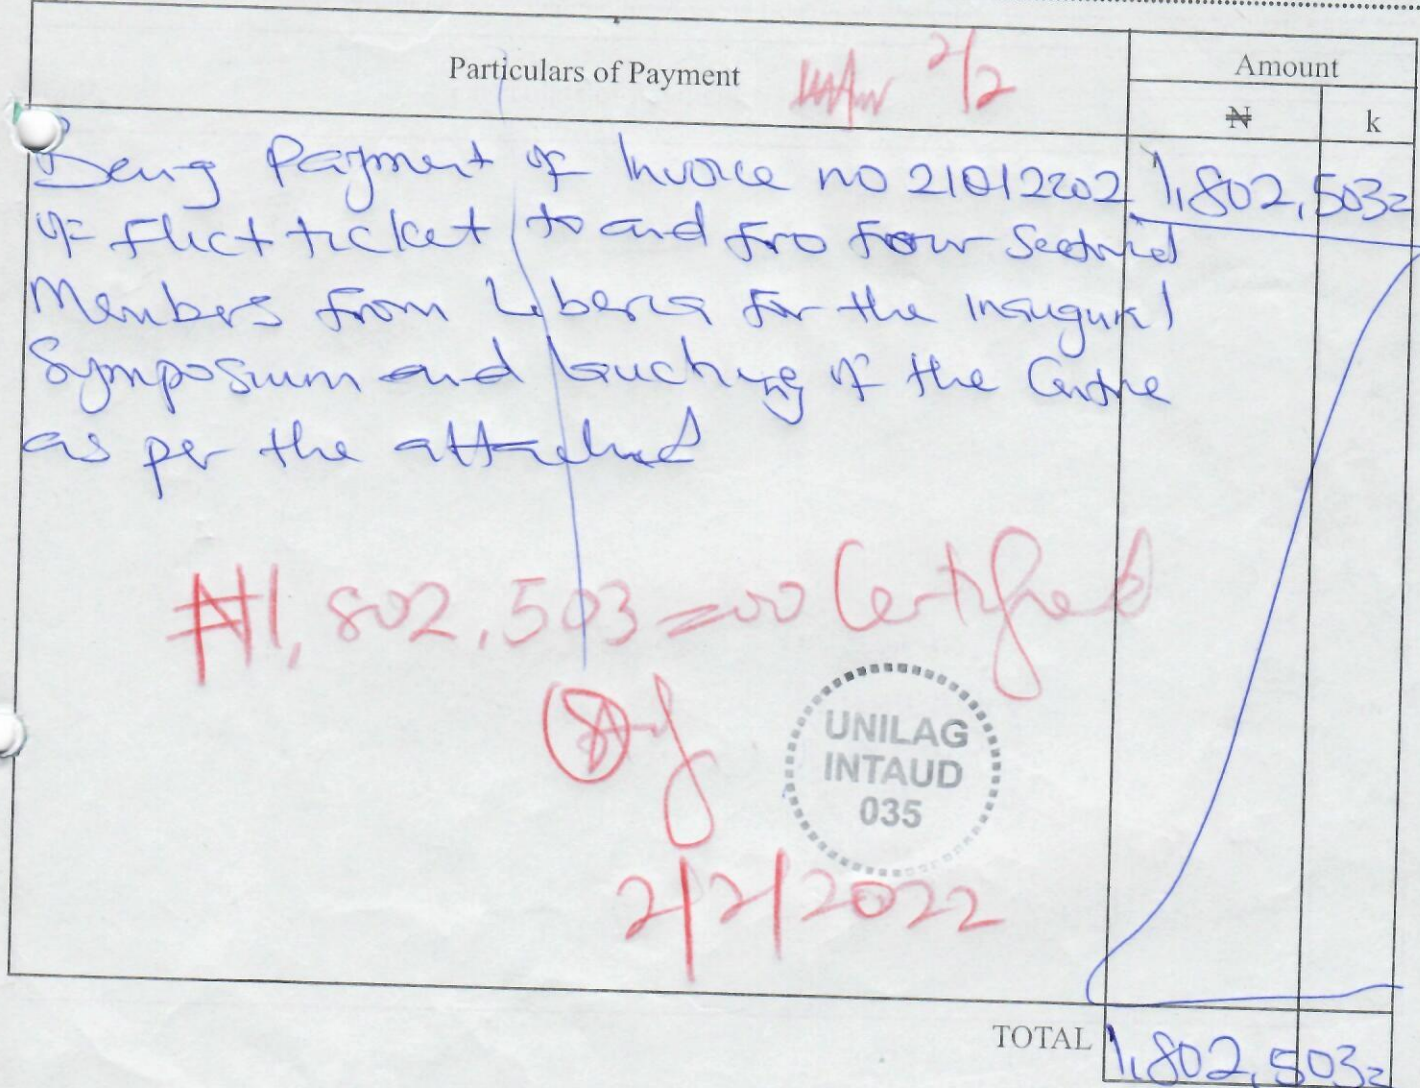 Particulars of Payment 2/2
Amount
₦ k
Being Payment of Invoice no 21012202 1,802,503=
of flict ticket to and fro four
Members from Liberia for the inaugural
Symposium and lauching of the Centre
as per the attached
₦1,802,503=00 Certified
UNILAG
INTAUD
035
2/2/2022
TOTAL 1,802,503=